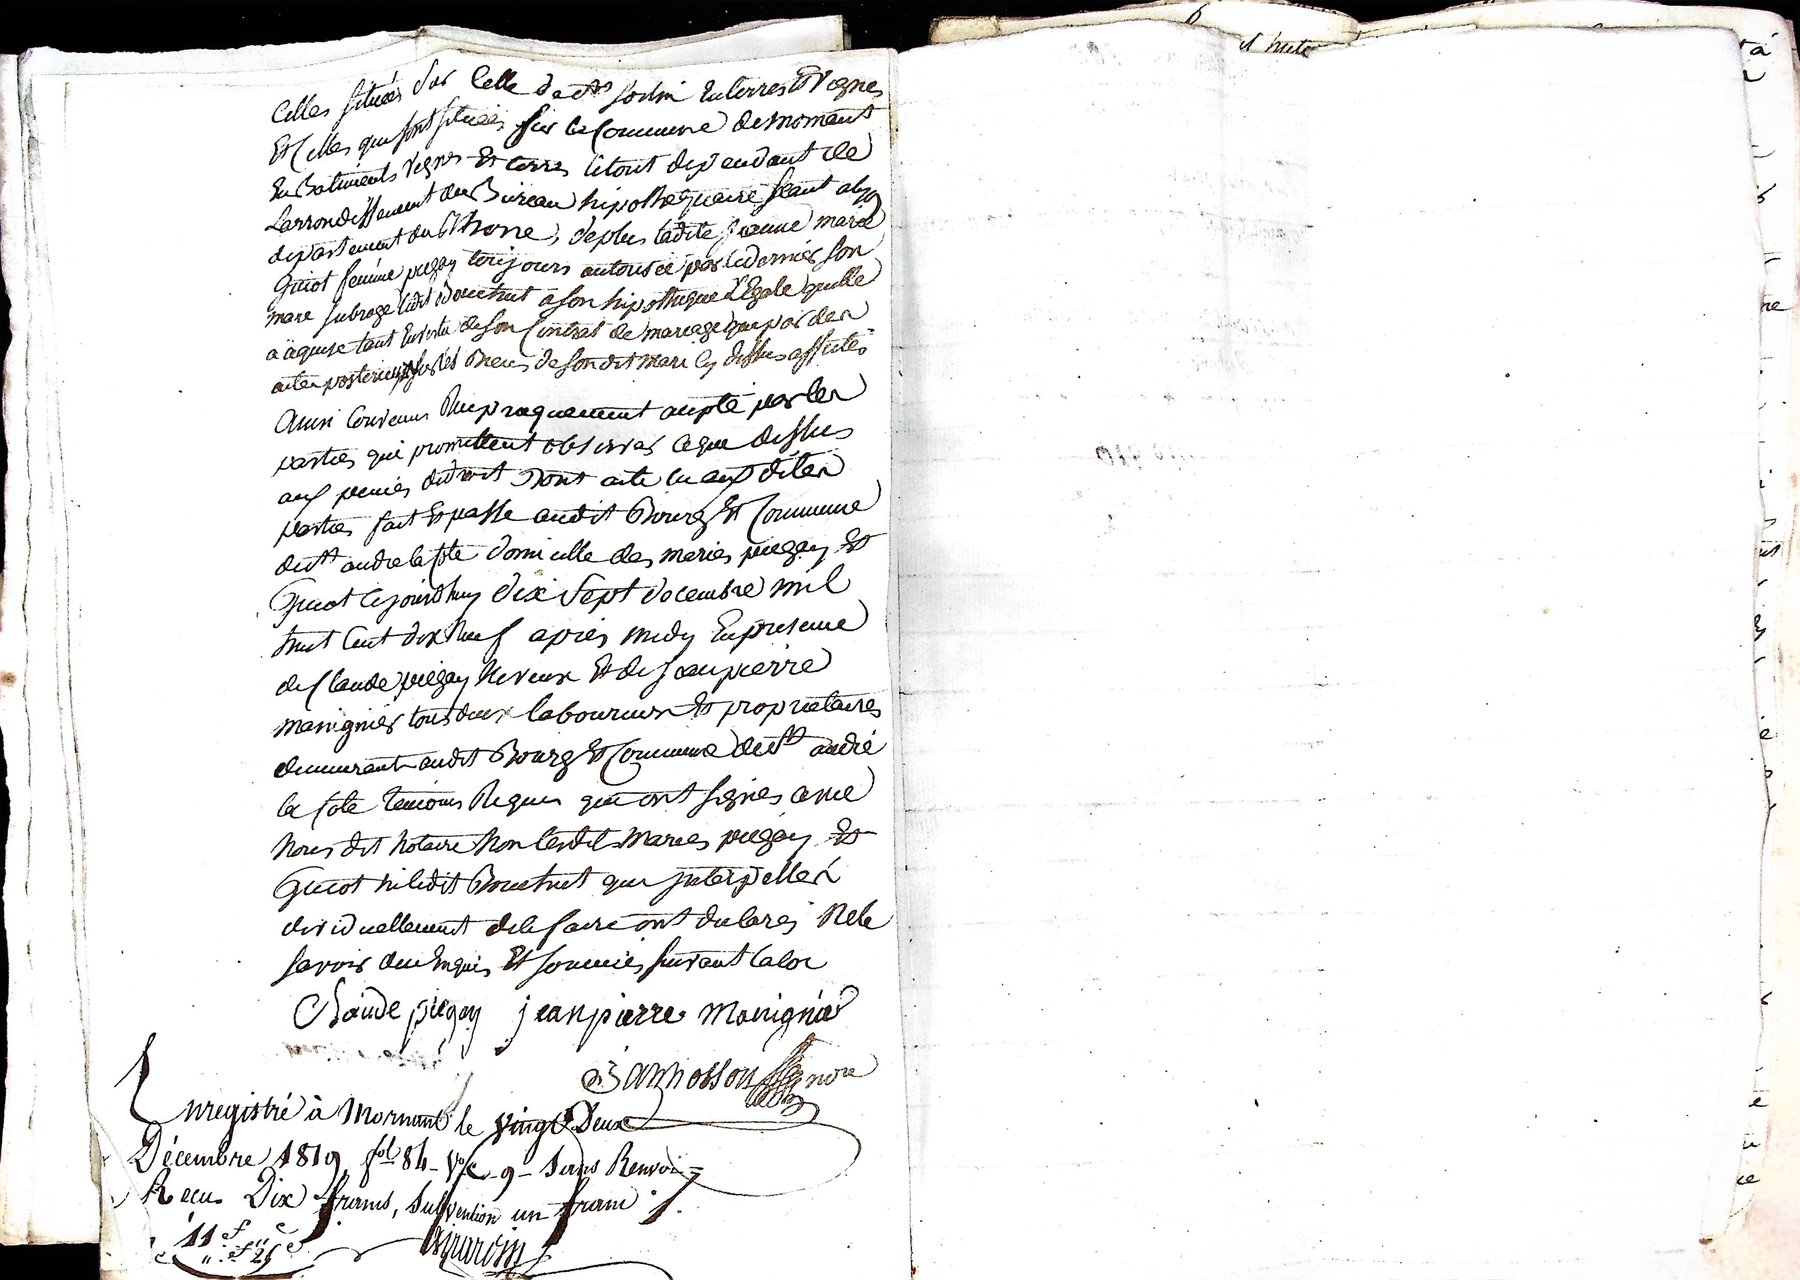 Celles situées sur celle de st Sorlin en terres et vignes
Et celles qui sont situées sur la Commune de mornant
En Batiments vignes Et terres le tout dependant de
Larrondissement du Bureau hipothequaire séant a lyon
departement du Rhone, deplus ladite jeanne marie
Guiot femme piegay toujours autorisée par le dernier son
mari subroge ledit Bouchut a son hipotheque légale quelle
a aquise tant En vertu de son Contrat de mariage que par der
actes posterieurs sur les Biens de sondit mari cy dessus affectés
Ainsi Convenu Reciproquement accepté par les
parties qui promettent observer ce que dessus
aux peines de droit Dont acte lu auxdites
parties fait Et passé audit Bourg Et Commune
de st andré la Côte domicille des mariés piegay Et
Guiot Cejourdhuy dix sept decembre mil
huit Cent dix Neuf après midy En presence
de Claude piegay Neveux Et de jean pierre
manignier tous deux laboureurs Et propriétaires
demeurant audit Bourg Et Commune de st andré
la Cote temoins Requis qui ont signés avec
Nous dit Notaire Non lesdits Mariés piegay Et
Guiot ni ledit Bouchut qui jnterpellés
dividuellement de le faire ont declarés Ne le
savoir de ce Enquis Et sommés suivant la loi
Claude piegay jean pierre Manignier
nore
Enregistré à Mornant le vingt Deux
Décembre 1819, fol 84 - Vo C - 9 - Sans Renvoi
Recu Dix francs, Subvention un franc
11 f " c
" f 25 c
Girardin